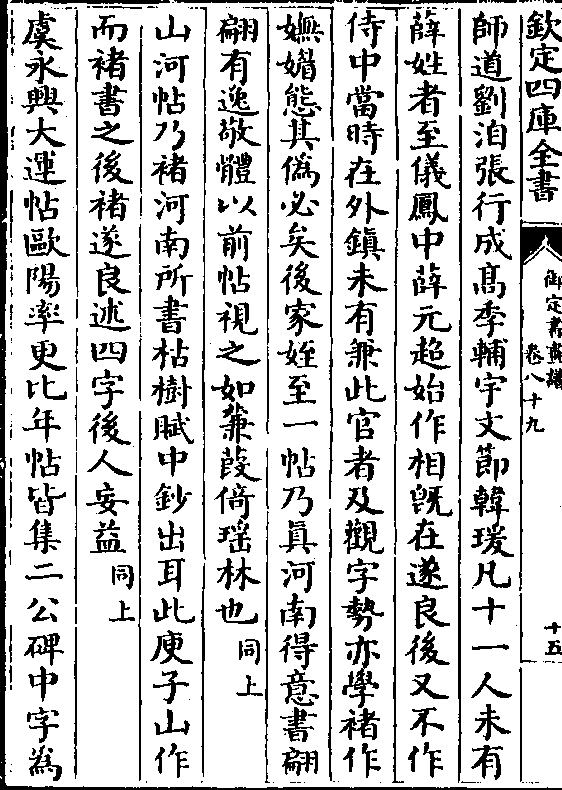 欽定四庫全書
御定書畫譜
卷八十九
十五
師道劉洎張行成髙季輔宇文節韓瑗凡十一人未有
薛姓者至儀鳳中薛元超始作相旣在遂良後又不作
侍中當時在外鎮未有兼此官者及觀字勢亦學褚作
嫵媚態其僞必矣後家姪至一帖乃眞河南得意書翩
翩有逸敬體以前帖視之如蒹葭倚瑶林也同上
山河帖乃褚河南所書枯樹賦中鈔出耳此庾子山作
而褚書之後褚遂良述四字後人妄益同上
虞永興大運帖歐陽率更比年帖皆集二公碑中字為